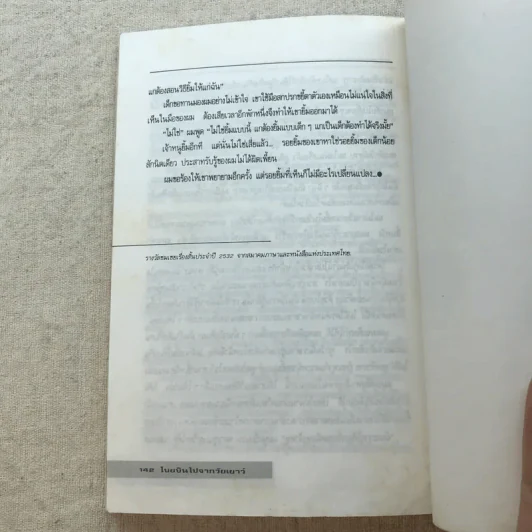 แกต้องสอนวิธียิ้มให้แก่ฉัน”
เด็กขอทานมองผมอย่างไม่เข้าใจ เขาใช้มือสกปรกขยี้ตาตัวเองเหมือนไม่แน่ใจในสิ่งที่
เห็นในมือของผม ต้องเสียเวลาอีกพักหนึ่งจึงทำให้เขายิ้มออกมาได้
“ไม่ใช่” ผมพูด “ไม่ใช่ยิ้มแบบนี้ แกต้องยิ้มแบบเด็ก ๆ แกเป็นเด็กต้องทำได้จริงมั้ย”
เจ้าหนูยิ้มอีกที แต่ฉันไม่ใช่เสียแล้ว... รอยยิ้มของเขาหาใช่รอยยิ้มของเด็กน้อย
สักนิดเดียว ประสาทรับรู้ของผมไม่ได้ผิดเพี้ยน
ผมขอร้องให้เขาพยายามอีกครั้ง แต่รอยยิ้มที่เห็นก็ไม่มีอะไรเปลี่ยนแปลง...●
รางวัลชมเชยเรื่องสั้นประจำปี 2532 จากสมาคมภาษาและหนังสือแห่งประเทศไทย
142 โบยบินไปจากวัยเยาว์